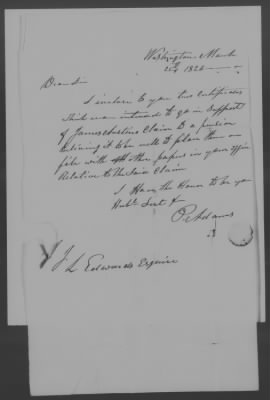 Washington March
25th 1826
Dear Sir
I inclose to you two certificates
which are intend to go in support
of James Claim to a pension
believing it be well to place them on
file with other papers in your office
Relative to the said Claim
I Have the Honor to be your
Hubl Servt &
P. Adams
J L Edwards Esquire